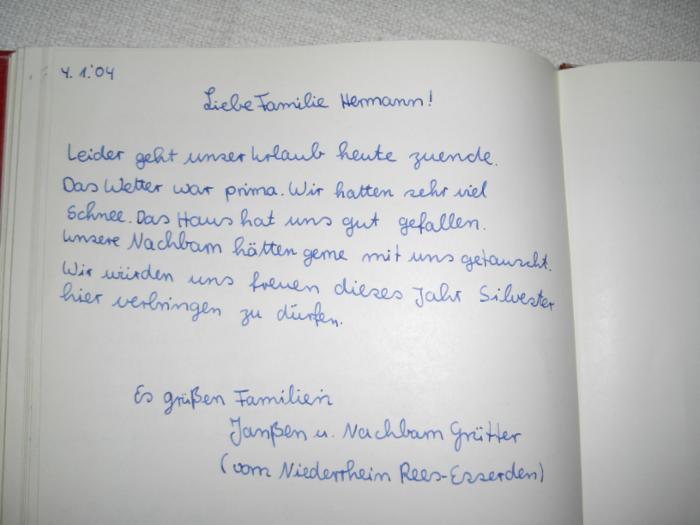 4. 1.'04
Liebe Familie Hermann!
Leider geht unser Urlaub heute zuende.
Das Wetter war prima. Wir hatten sehr viel
Schnee. Das Haus hat uns gut gefallen.
Unsere Nachbarn hätten gerne mit uns getauscht.
Wir würden uns freuen dieses Jahr Silvester
hier verbringen zu dürfen.
Es grüßen Familien
Janßen u. Nachbarn Grütter
(vom Niederrhein Rees-Esserden)